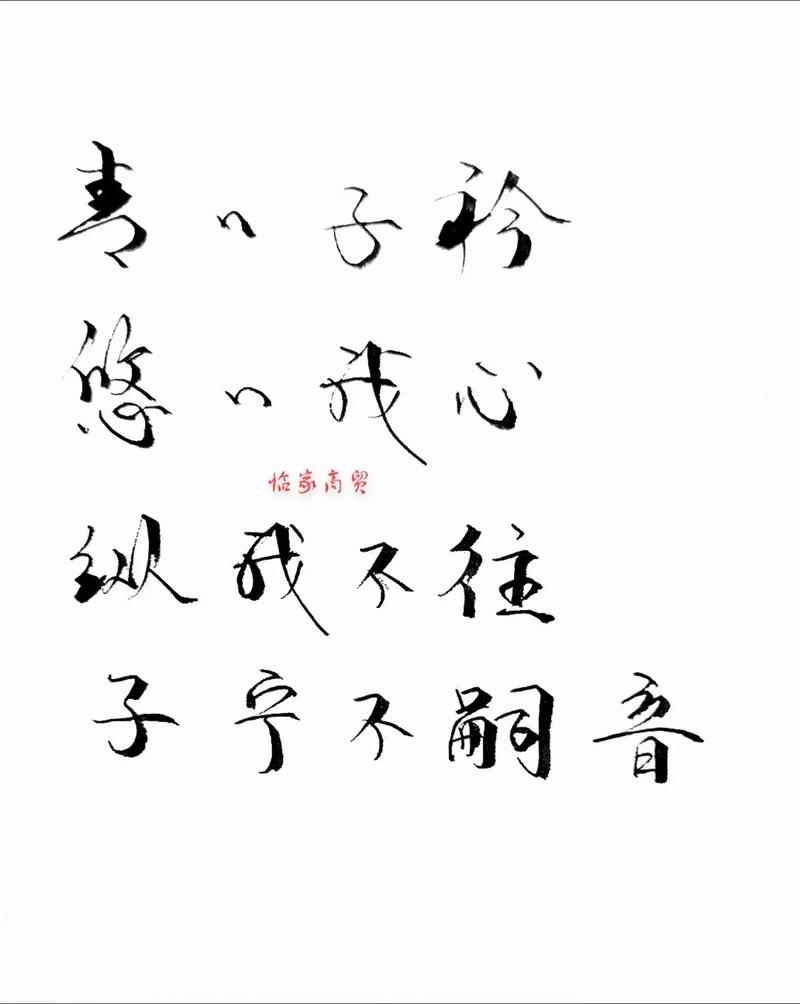 青〃子衿
悠〃我心
怡家商贸
纵我不往
子宁不嗣音